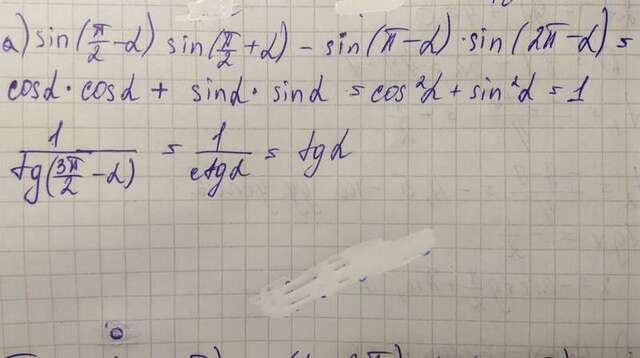 а) sin(π/2 - α) sin(π/2 + α) - sin(π - α) · sin(2π - α) =
cosα · cosα + sinα · sinα = cos²α + sin²α = 1
1/tg(3π/2 - α) = 1/ctgα = tgα